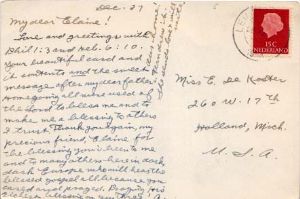 Dec. 27
My dear Elaine!
Love and greetings with
Phil 1:3 and Heb. 6:10.
Your beautiful card and
its contents and the sweet
message after my dear father's
Homegoing all were used of
the Lord to bless me and to
make me a blessing to others
I trust. Thank you again, my
precious friend, Elaine for
the blessing you've been to me
and to many others here in dark
dark Europe who will hear the
blessed gospel all because you
cared and prayed. Praying
15c
NEDERLAND
Miss E. De
260 W. 17th
Holland, Mich.
U.S.A.